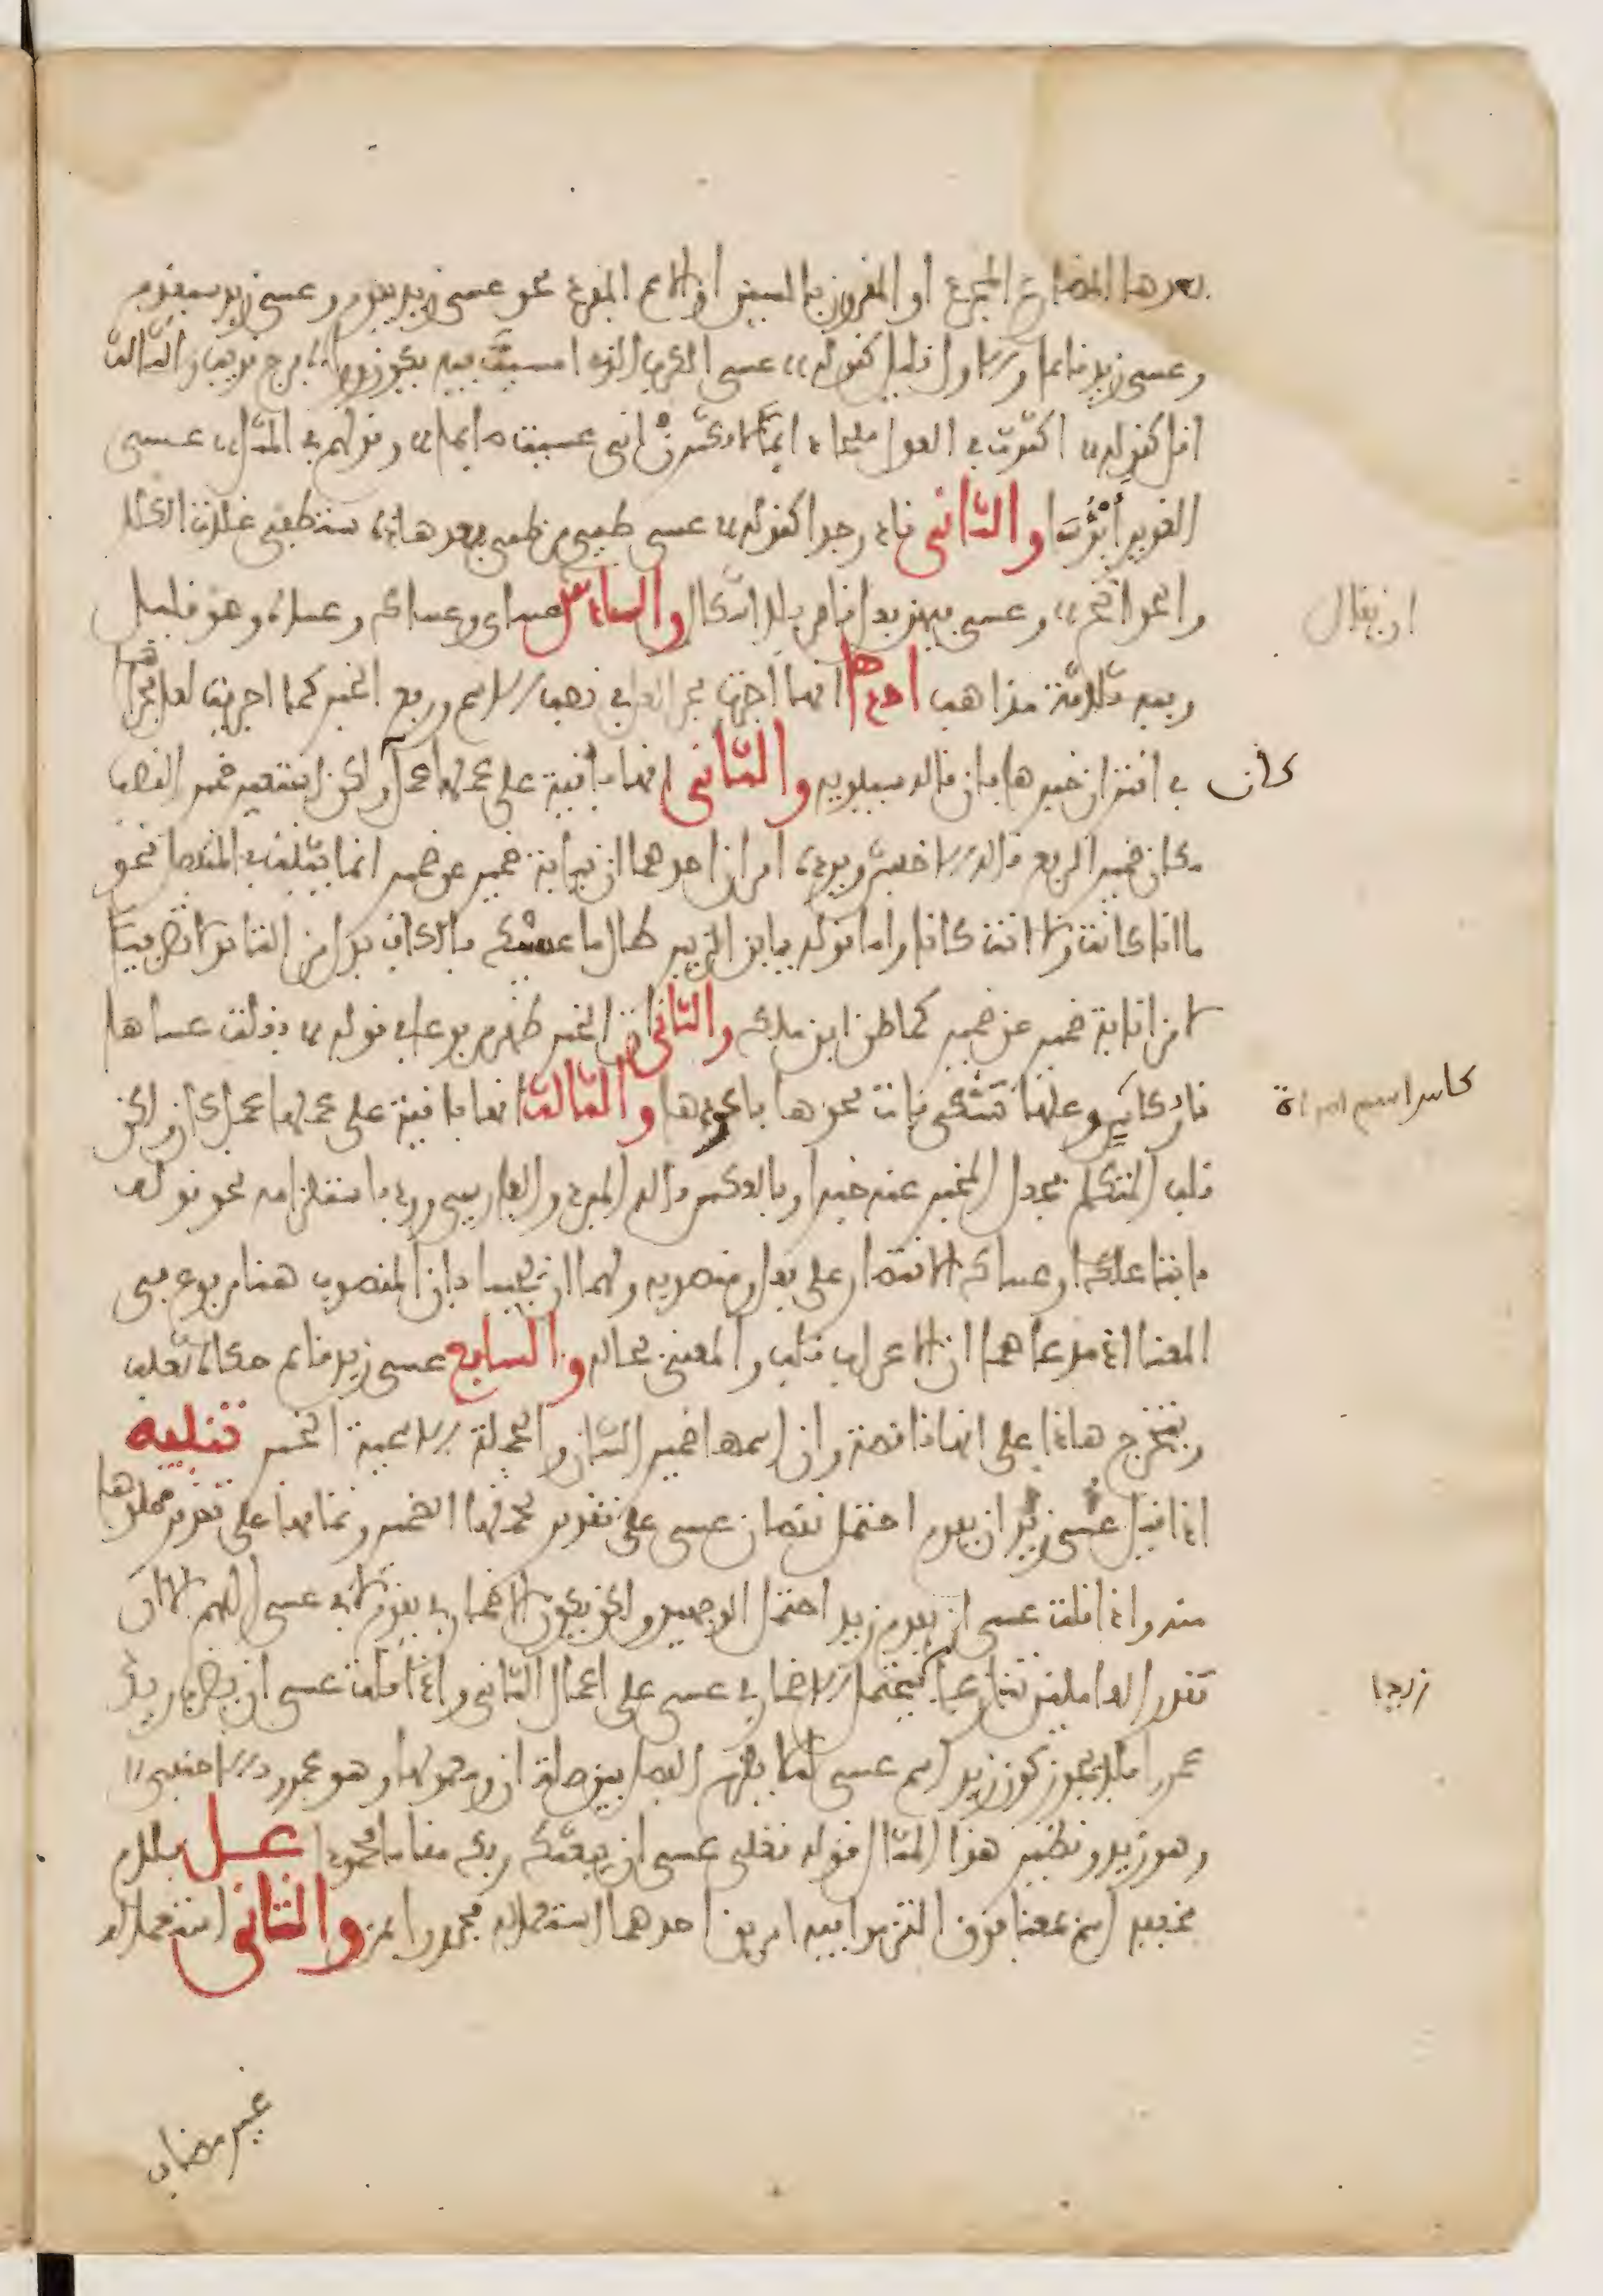 بعدها المضارع المجرد او المقرون بالسين او الاسم المفرد نحو عسى زيد يقوم وعسى زيد سيقوم
وعسى زيد قائما والاول قليل كقوله عسى الكرب الذي امسيت فيه يكون وراءه فرج قريب والثالث
اقل كقوله اكثرت في العذل ملحا دائما لا تكثرن اني عسيت صائما وقولهم في المثل عسى
الغوير أبؤسا والثاني نادر جدا كقوله عسى طيئ من طيئ بعد هذه ستطفئ غلات الكلى
والجوانح وعسى فيهن فعل ناقص بلا اشكال والسادس عساي وعساك وعساه وهو قليل
ان يقال
وفيه ثلاثة مذاهب احدها انها اجريت مجرى لعل في نصب الاسم ورفع الخبر كما اجريت لعل مجراها
في اقتران خبرها بان قاله سيبويه والثاني انها باقية على عملها عمل كان ولكن استعير ضمير النصب
مكان ضمير الرفع قاله الاخفش ويرده امران احدهما ان نيابة ضمير عن ضمير انما يثبت في المنفصل نحو
ما انا كانت ولا انت كانا واما قوله يا بن الزبير طال ما عصيكا فالكاف بدل من التاء بدلا تصريفيا
لا من انابة ضمير عن ضمير كما ظن ابن ملك والثاني ان الخبر ظهر مرفوعا في قوله فقلت عساها
نار كاس وعلها تشكى فآت نحوها فاعودها والثالث انها باقية على عملها عمل كان ولكن
كاس اسم امراة
قلب الكلام فجعل المخبر عنه خبرا وبالعكس قاله المبرد والفارسي ورد باستلزامه نحو قوله
يا ابتا علك او عساك الاقتصار على فعل ومنصوبه ولهما ان يجيبا بان المنصوب هنا مرفوع في
المعنى اذ مدعاهما ان الاعراب قلب والمعنى بحاله والسابع عسى زيد قائم حكاه ثعلب
ويتخرج هذا على انها ناقصة وان اسمها ضمير الشان والجملة الاسمية الخبر تنبيه
اذا قيل عسى زيد ان يقوم احتمل نقصان عسى على تقدير تحملها الضمير وتمامها على تقدير خلوها
منه واذا قلت عسى ان يقوم زيد احتمل الوجهين ولكن يكون الاضمار في يقوم لا في عسى اللهم الا ان
تقدر العاملين تنازعا زيدا فيحتمل الاضمار في عسى على اعمال الثاني واذا قلت عسى ان يضرب زيد
عمرا فلا يجوز كون زيد اسم عسى لئلا يلزم الفصل بين صلة ان ومعمولها وهو عمرو بالاجنبي
وهو زيد ونظير هذا المثال قوله تعلى عسى ان يبعثك ربك مقاما محمودا عل بلام
خفيفة اسم بمعنى فوق التزموا فيه امرين احدهما استعماله مجرورا بمن والثاني استعماله
غير مضاف